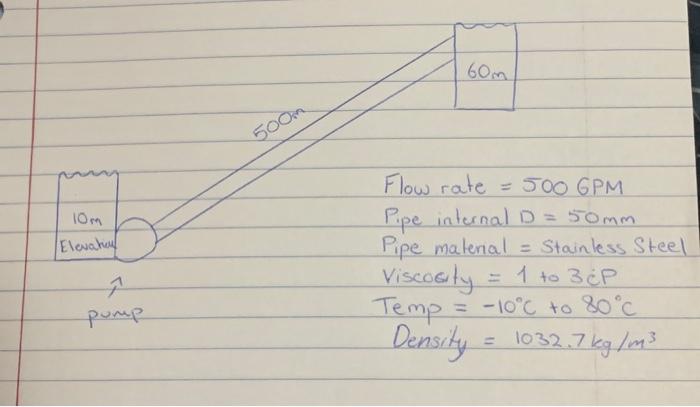 60m
500m
10m
Elevation
pump
Flow rate = 500 GPM
Pipe internal D = 50mm
Pipe material = Stainless Steel
Viscosity = 1 to 3cP
Temp = -10°C to 80°C
Density = 1032.7kg/m³